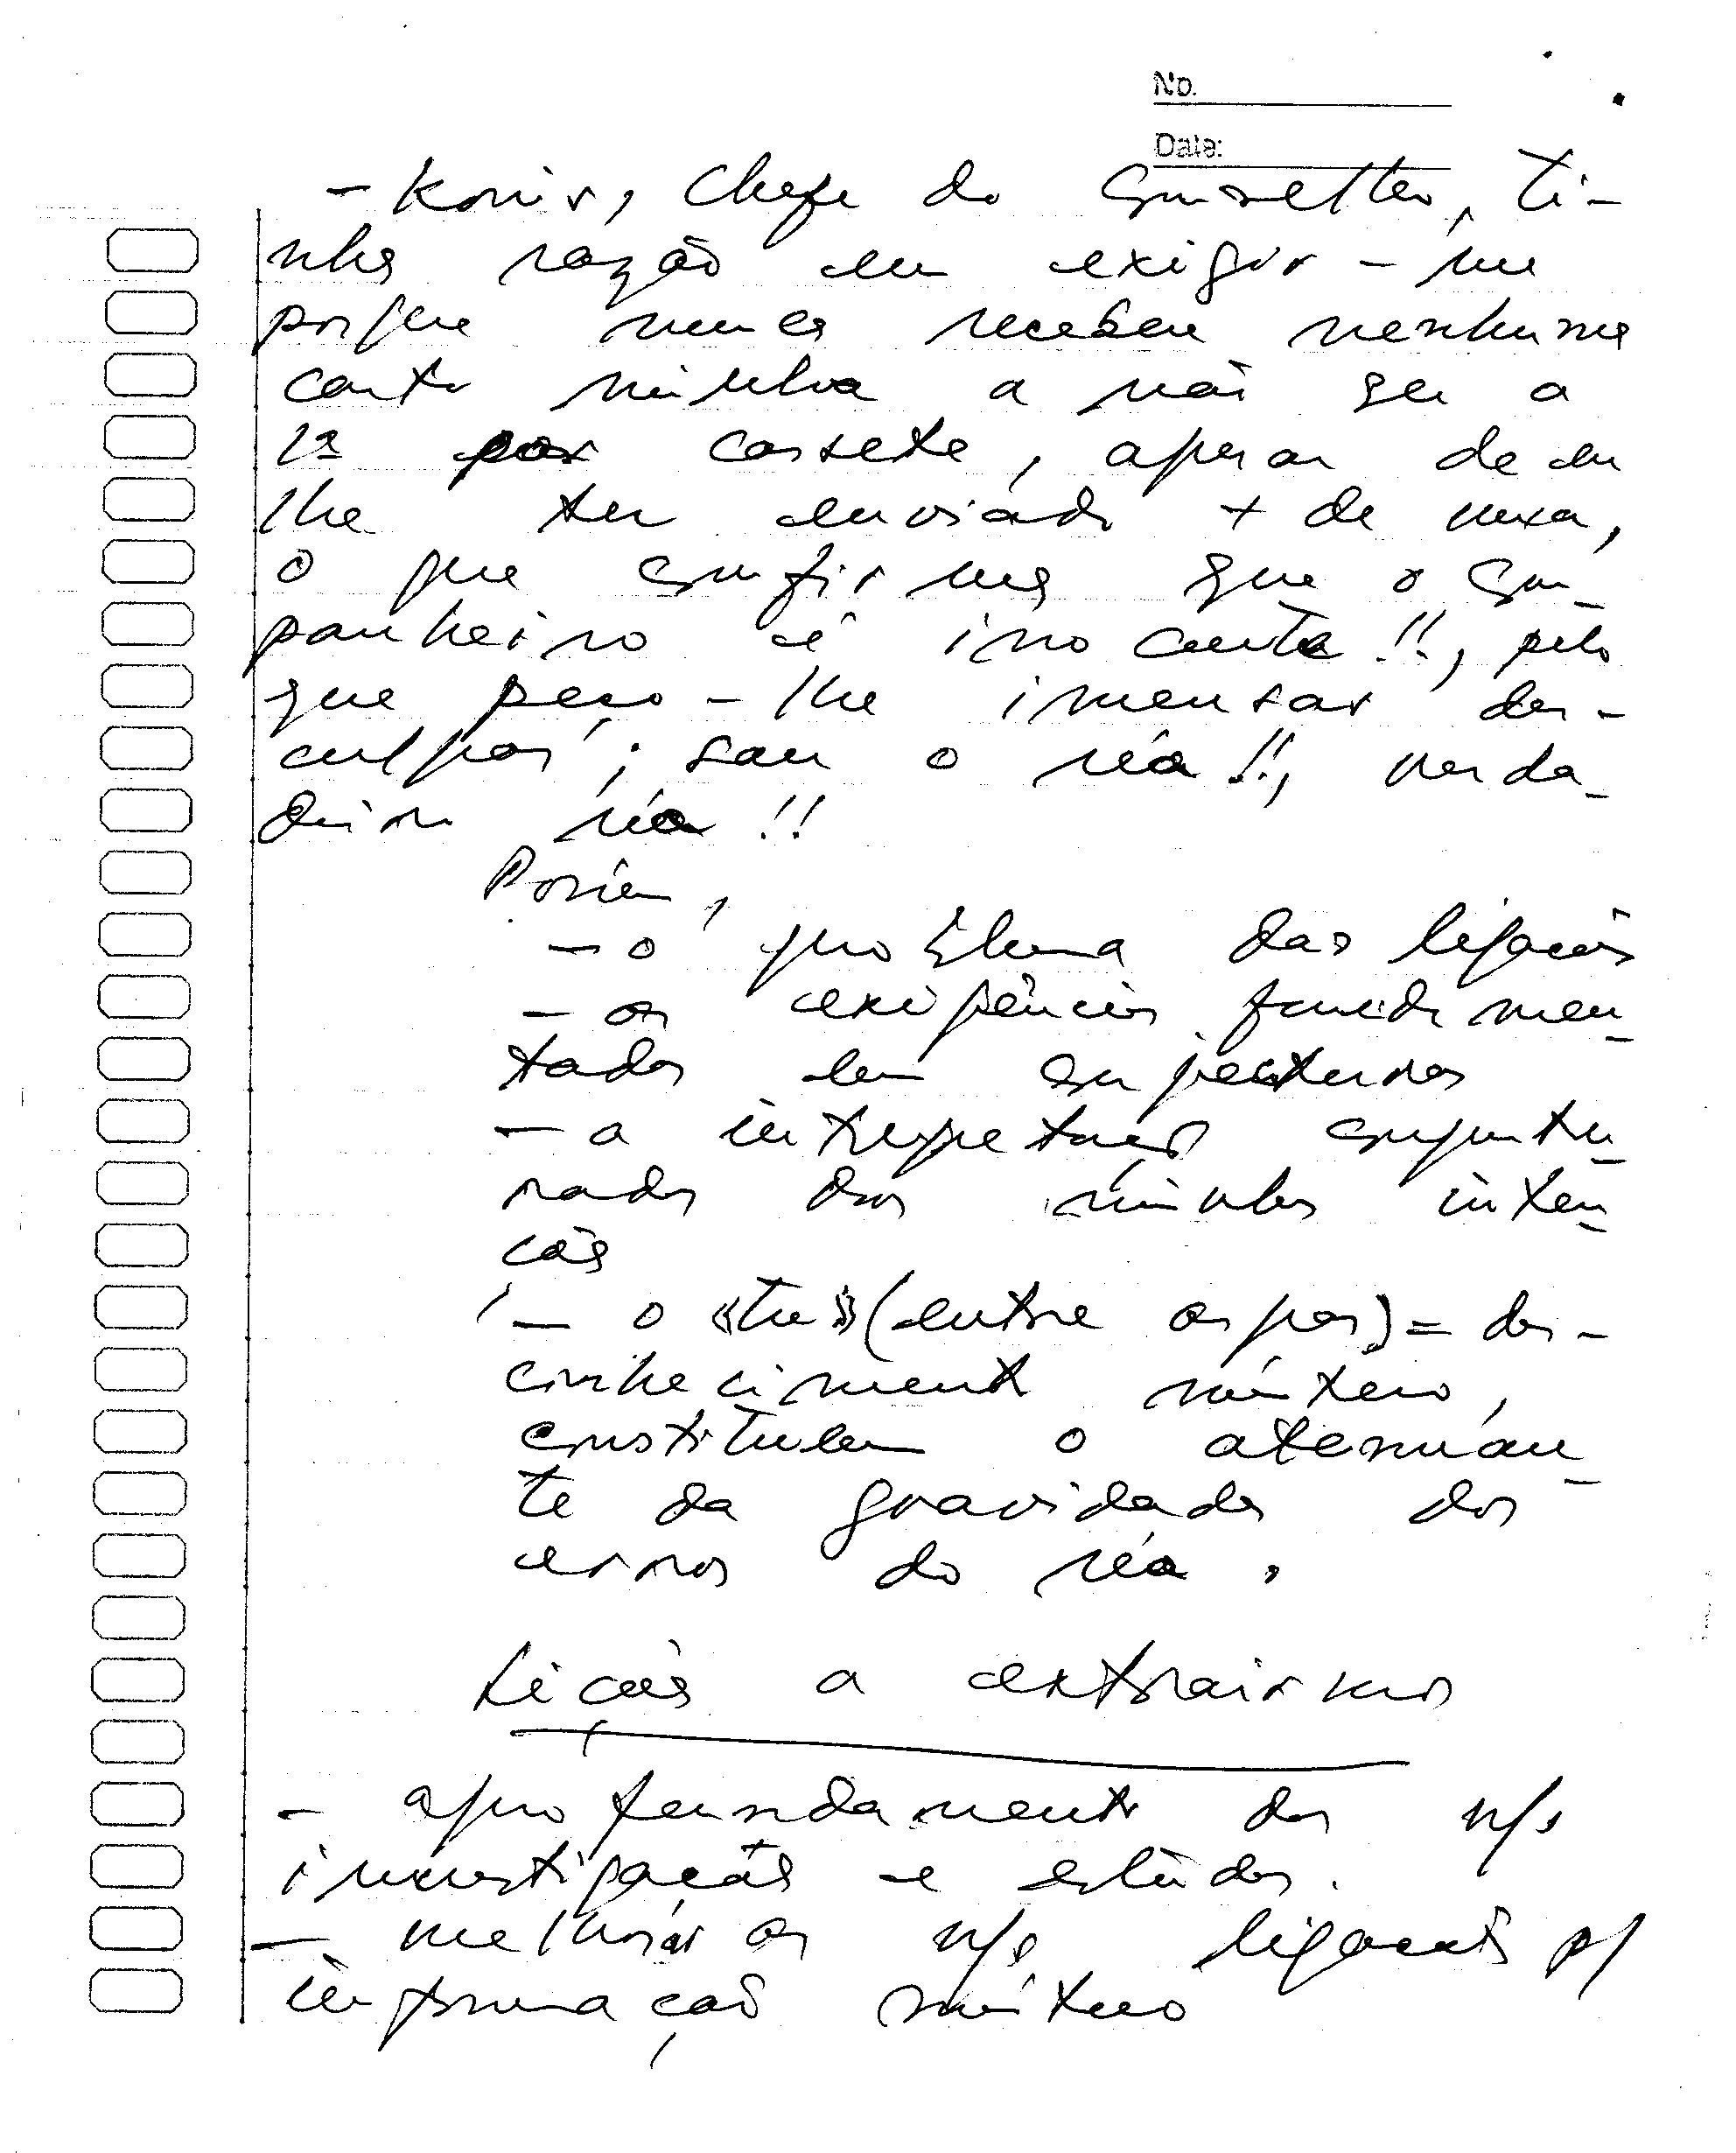 No.
Date:
- Konis, Chefe do Conselho, ti-
nha razão em exigir-me
porque nunca recebeu nenhuma
carta minha a não ser a
1ª por cassete, apesar de eu
lhe ter enviado + de uma,
o que confirma que o com-
panheiro é inocente!!, pelo
que peço-lhe imensas des-
culpas; sou o réu!!, verda-
deiro réu!!
Porém,
- o problema das ligações
- as exigências fundamen-
tadas em conjecturas
- a interpretação conjectu-
rada das minhas inten-
ções
- o «tu» (entre aspas) = des-
conhecimento mútuo,
constituem o atenuan-
te da gravidade dos
erros do réu.
Lições a extrairmos
- aprofundamento das n/s
investigações e estudos.
- melhorar as n/s ligações p/
informação mútua